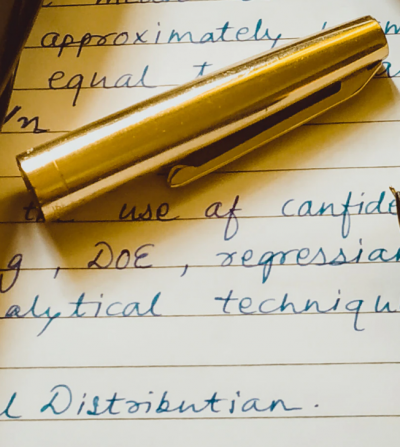 approximately
equal
/n
use of confide
g, DOE, regression
alytical techniqu
l Distribution.